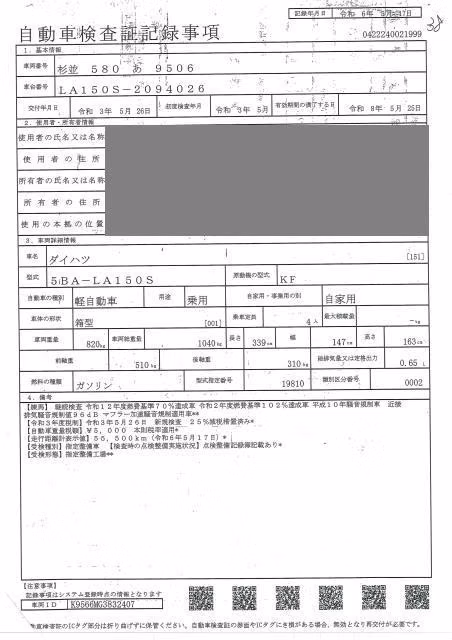 記録年月日 令和 6年 5月17日
38
自動車検査証記録事項
0422240021999
1.基本情報
車両番号 杉並 580 あ 9506
車台番号 LA150S-2094026
交付年月日 令和 3年 5月 26日 初度検査年月 令和 3年 5月 有効期間の満了する日 令和 8年 5月 25日
2.使用者・所有者情報
使用者の氏名又は名称
使用者の住所
所有者の氏名又は名称
所有者の住所
使用の本拠の位置
3.車両詳細情報
車名 ダイハツ [151]
型式 5BA-LA150S 原動機の型式 KF
自動車の種別 軽自動車 用途 乗用 自家用・事業用の別 自家用
車体の形状 箱型 [001] 乗車定員 4人 最大積載量 -kg
車両重量 820kg 車両総重量 1040kg 長さ 339cm 幅 147cm 高さ 163cm
前軸重 510kg 後軸重 310kg 総排気量又は定格出力 0.65 L
燃料の種類 ガソリン 型式指定番号 19810 類別区分番号 0002
4.備考
【練馬】 継続検査 令和12年度燃費基準70%達成車 令和2年度燃費基準102%達成車 平成10年騒音規制車 近接
排気騒音規制値96dB マフラー加速騒音規制適用車**
【令和3年度税制】令和3年5月26日 新規検査 25%減税措置済み*
【自動車重量税額】¥5,000 本則税率適用*
【走行距離計表示値】56,500km(令和6年5月17日)*
【受検種別】指定整備車 【検査時の点検整備実施状況】点検整備記録簿記載あり*
【受検形態】指定整備工場**
【注意事項】
記録事項はシステム登録時点の情報となります
車両ID K9566MG3832407
自動車検査証のICタグ部分は折り曲げずに保管ください。自動車検査証の券面やICタグにき損がある場合、無効となり再交付が必要です。